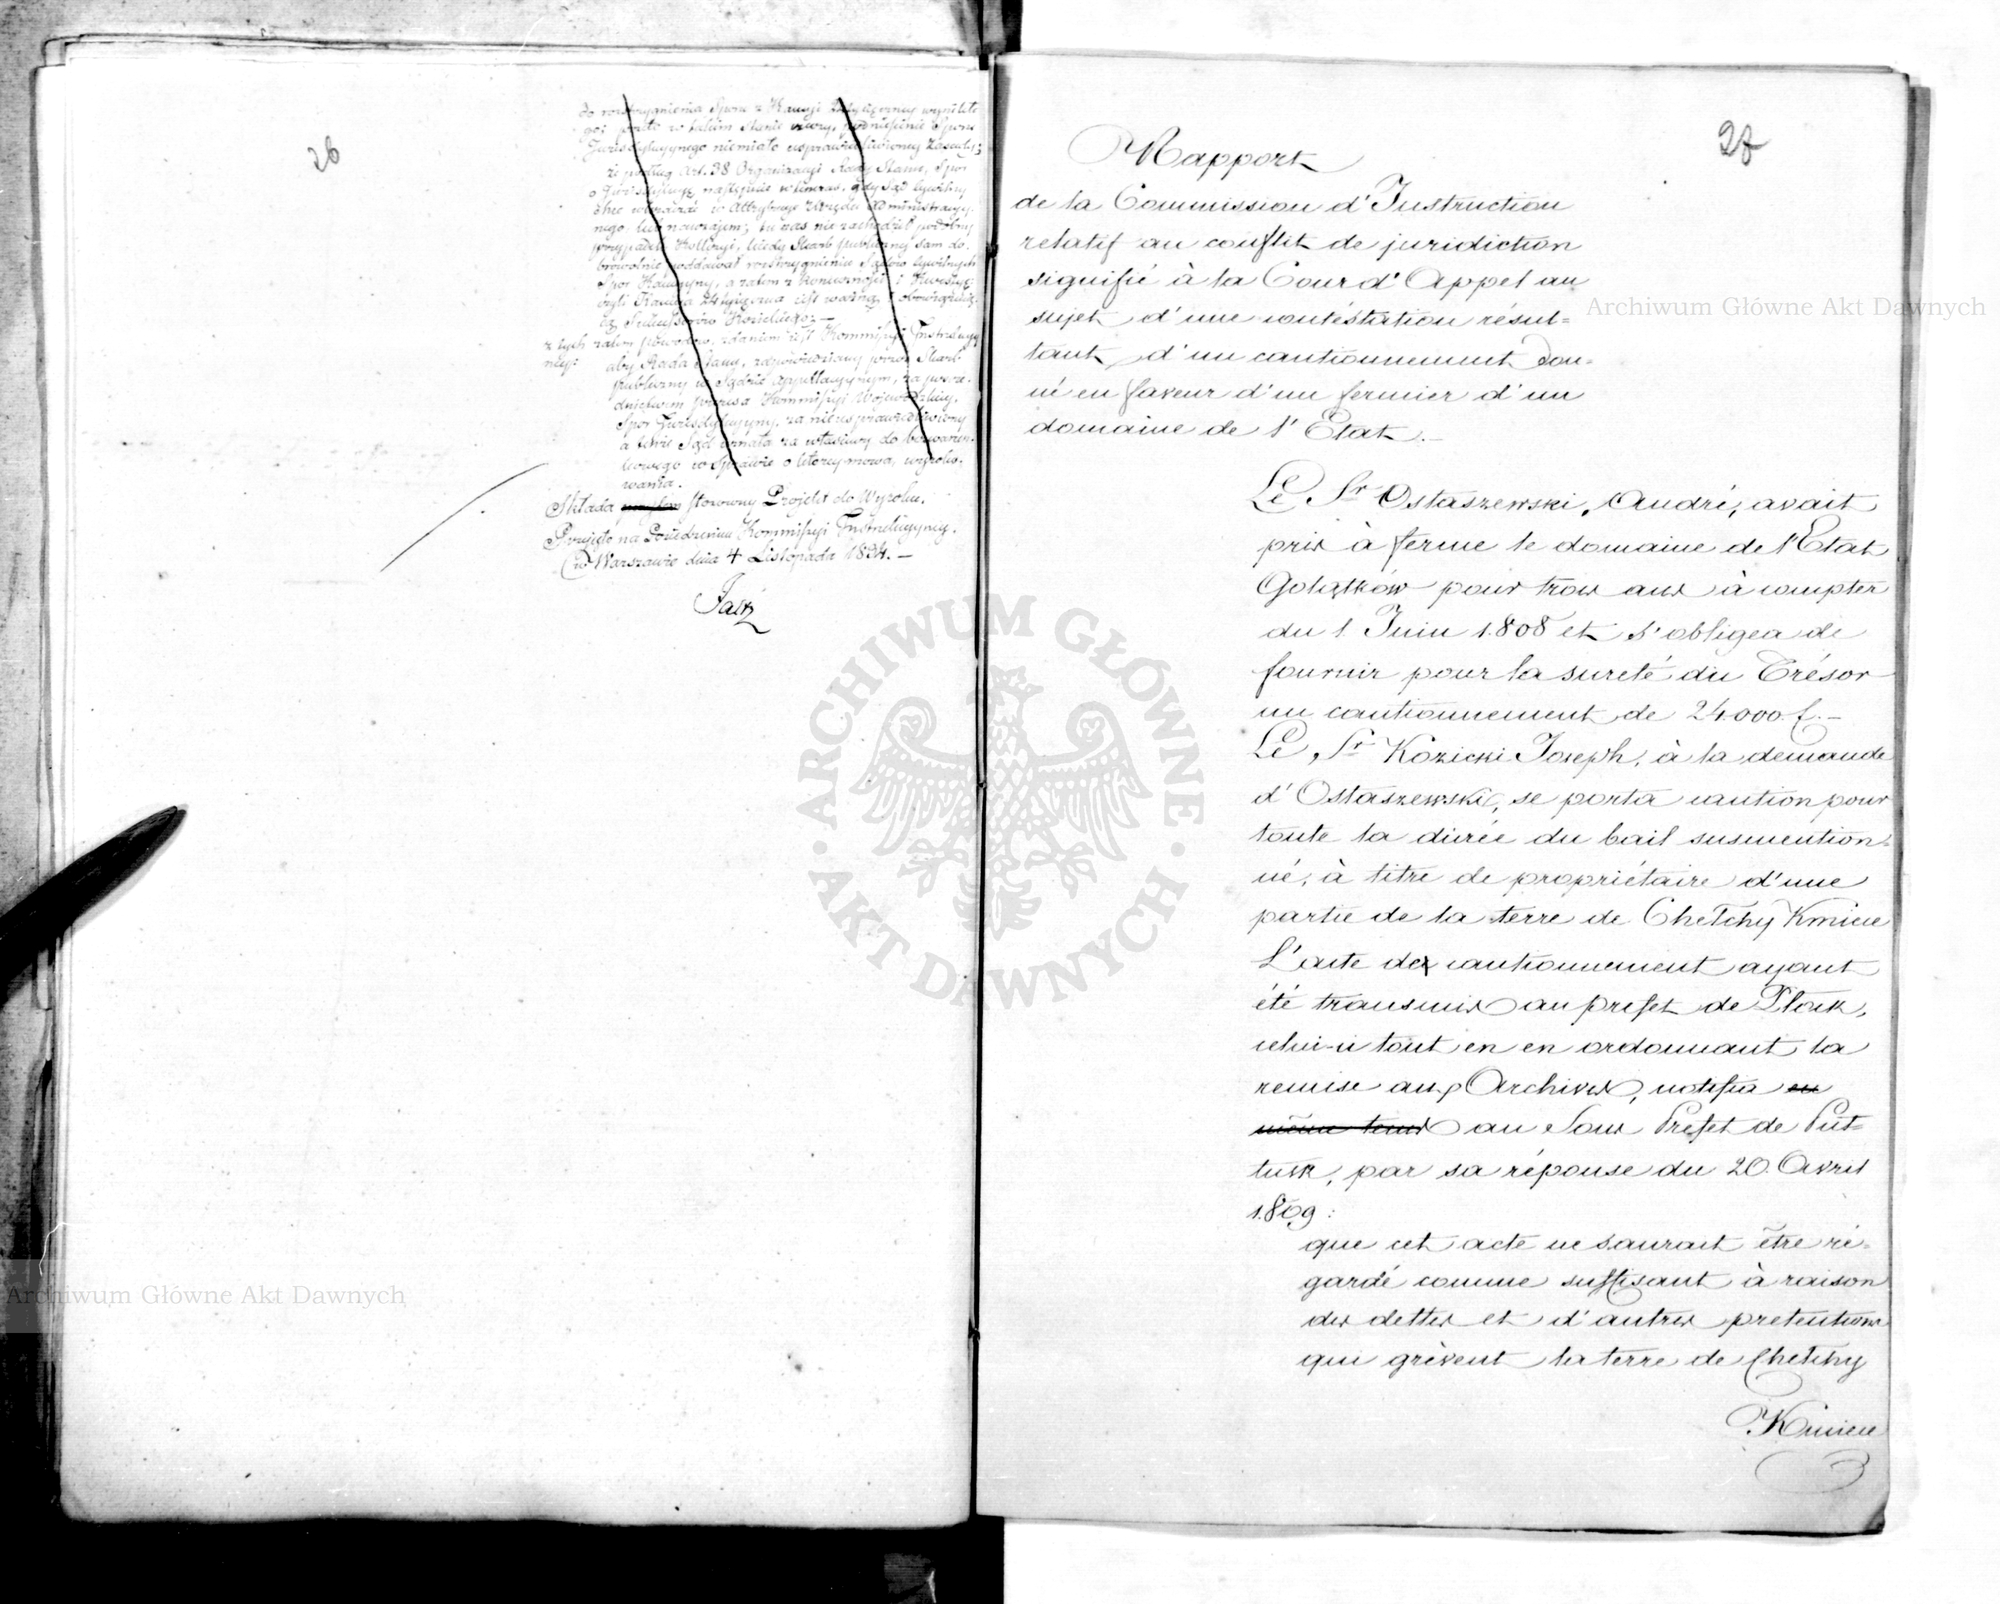 26
do rozstrzygnienia Sporu z Kaucyi
goż przeto w takim Stanie rzeczy, podniesienie Sporu
Jurisdykcyjnego niemiało usprawiedliwioney Zasady;
że podług Art. 38 Organizacyi Rady Stanu, Spór
o Jurisdykcyę następuie wówczas, gdy Sąd Cywilny
chce wkraczać w Attrybucye Urzędu Administracyi-
nego lub nawzajem; tu zaś nie zachodził podobny
przypadek Kollizyi, kiedy Skarb publiczny sam do-
browolnie poddawał rozstrzygnieniu Sądów Cywilnych
Spór Kaucyiny, a zatem z Konieczności i Kwestyę
czyli Kaucya jest ważną i obowiązuią-
cą Sukcessorów Kozickiego; —
z tych zatem powodów, zdaniem iest Kommissyi Instrukcyi-
ney: aby Rada Stanu, zapowiedziany przez Skarb
publiczny w Sądzie Appellacyinym, za pośre-
dnictwem Prezesa Kommissyi Woiewódzkiey,
Spór Jurisdykcyiny, za nieusprawiedliwiony
a tenże Sąd uznała za właściwy do
w Sprawie o którey mowa, wyroko-
wania.
Składa stosowny Projekt do Wyroku.
Przyięto na Posiedzeniu Kommissyi Instrukcyiney.
w Warszawie dnia 4 Listopada 1824. —
27
Rapport
de la Commission d'Instruction
relatif au conflit de juridiction
signifié à la Cour d'Appel au
sujet d'une contestation résul=
tant d'un cautionnement don=
né en faveur d'un fermier d'un
domaine de l'Etat. —
Le Sr Ostaszewski, André, avait
pris à ferme le domaine de l'Etat
Gołątków pour trois ans à compter
du 1 Juin 1808 et s'obligea de
fournir pour la sureté du Trésor
un cautionnement de 24.000 f. —
Le Sr Kozicki Joseph, à la demande
d'Ostaszewski, se porta caution pour
toute la durée du bail susmention=
né, à titre de propriétaire d'une
partie de la terre de Chełchy Kmiece
L'acte de cautionnement ayant
été transmis au prefet de Płock,
celui-ci tout en en ordonnant la
remise aux Archives, notifia en
même tems au Sous Prefet de Put=
tusk, par sa réponse du 20. Avril
1809:
que cet acte ne saurait être re-
gardé comme suffisant à raison
des dettes et d'autres pretentions
qui grèvent la terre de Chełchy
Kmiece
Archiwum Główne Akt Dawnych
Archiwum Główne Akt Dawnych
ARCHIWUM GŁÓWNE AKT DAWNYCH